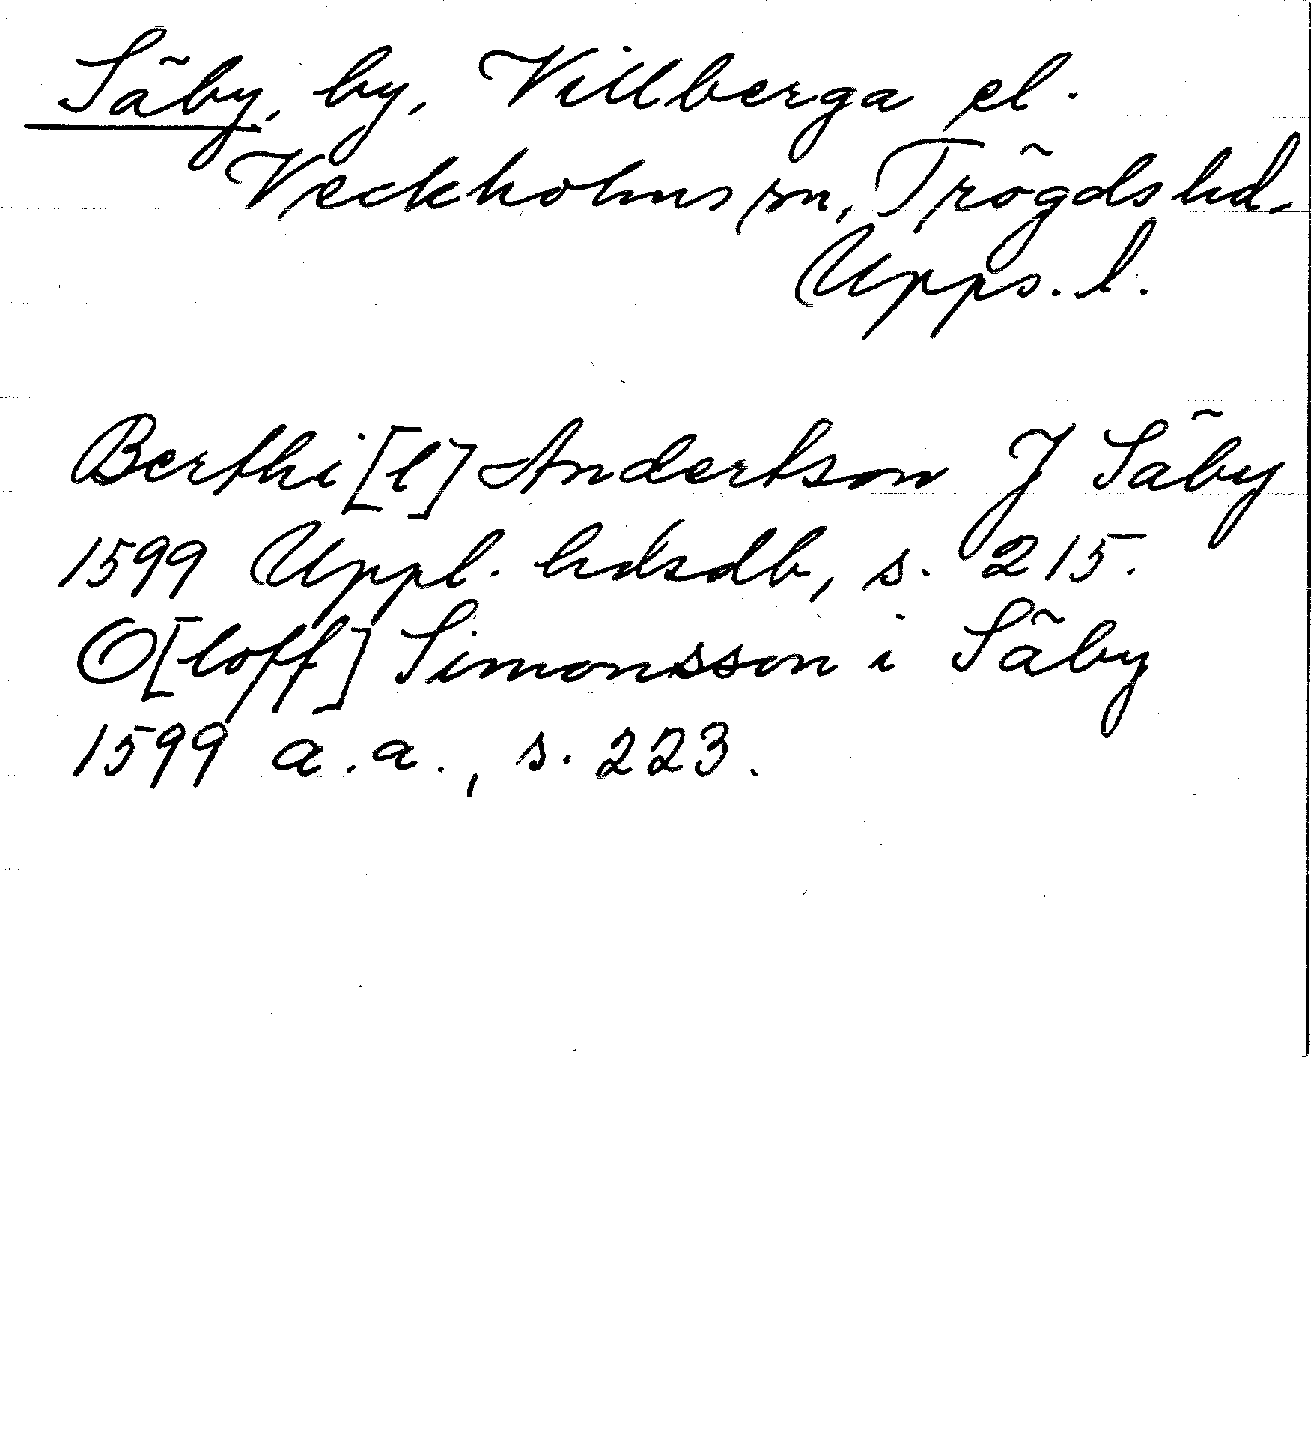 Säby, by, Villberga el.
Veckholms sn, Trögds hd.
Upps. l.
Berthi[l] Andertson J Säby
1599 Uppl. hdsdb, s. 215.
O[loff] Simonsson i Säby
1599 a.a., s. 223.